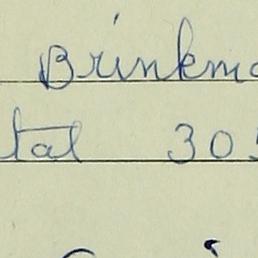 Brinkma
tal 305